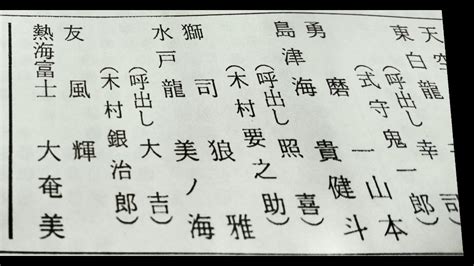 天空
東白龍
(呼出し 幸司)
(式守鬼一郎)
勇磨 一山本
島津海 貴健斗
(呼出し 照喜)
(木村要之助)
獅司 狼雅
水戸龍 美ノ海
(呼出し 大吉)
(木村銀治郎)
友風 輝
熱海富士 大奄美